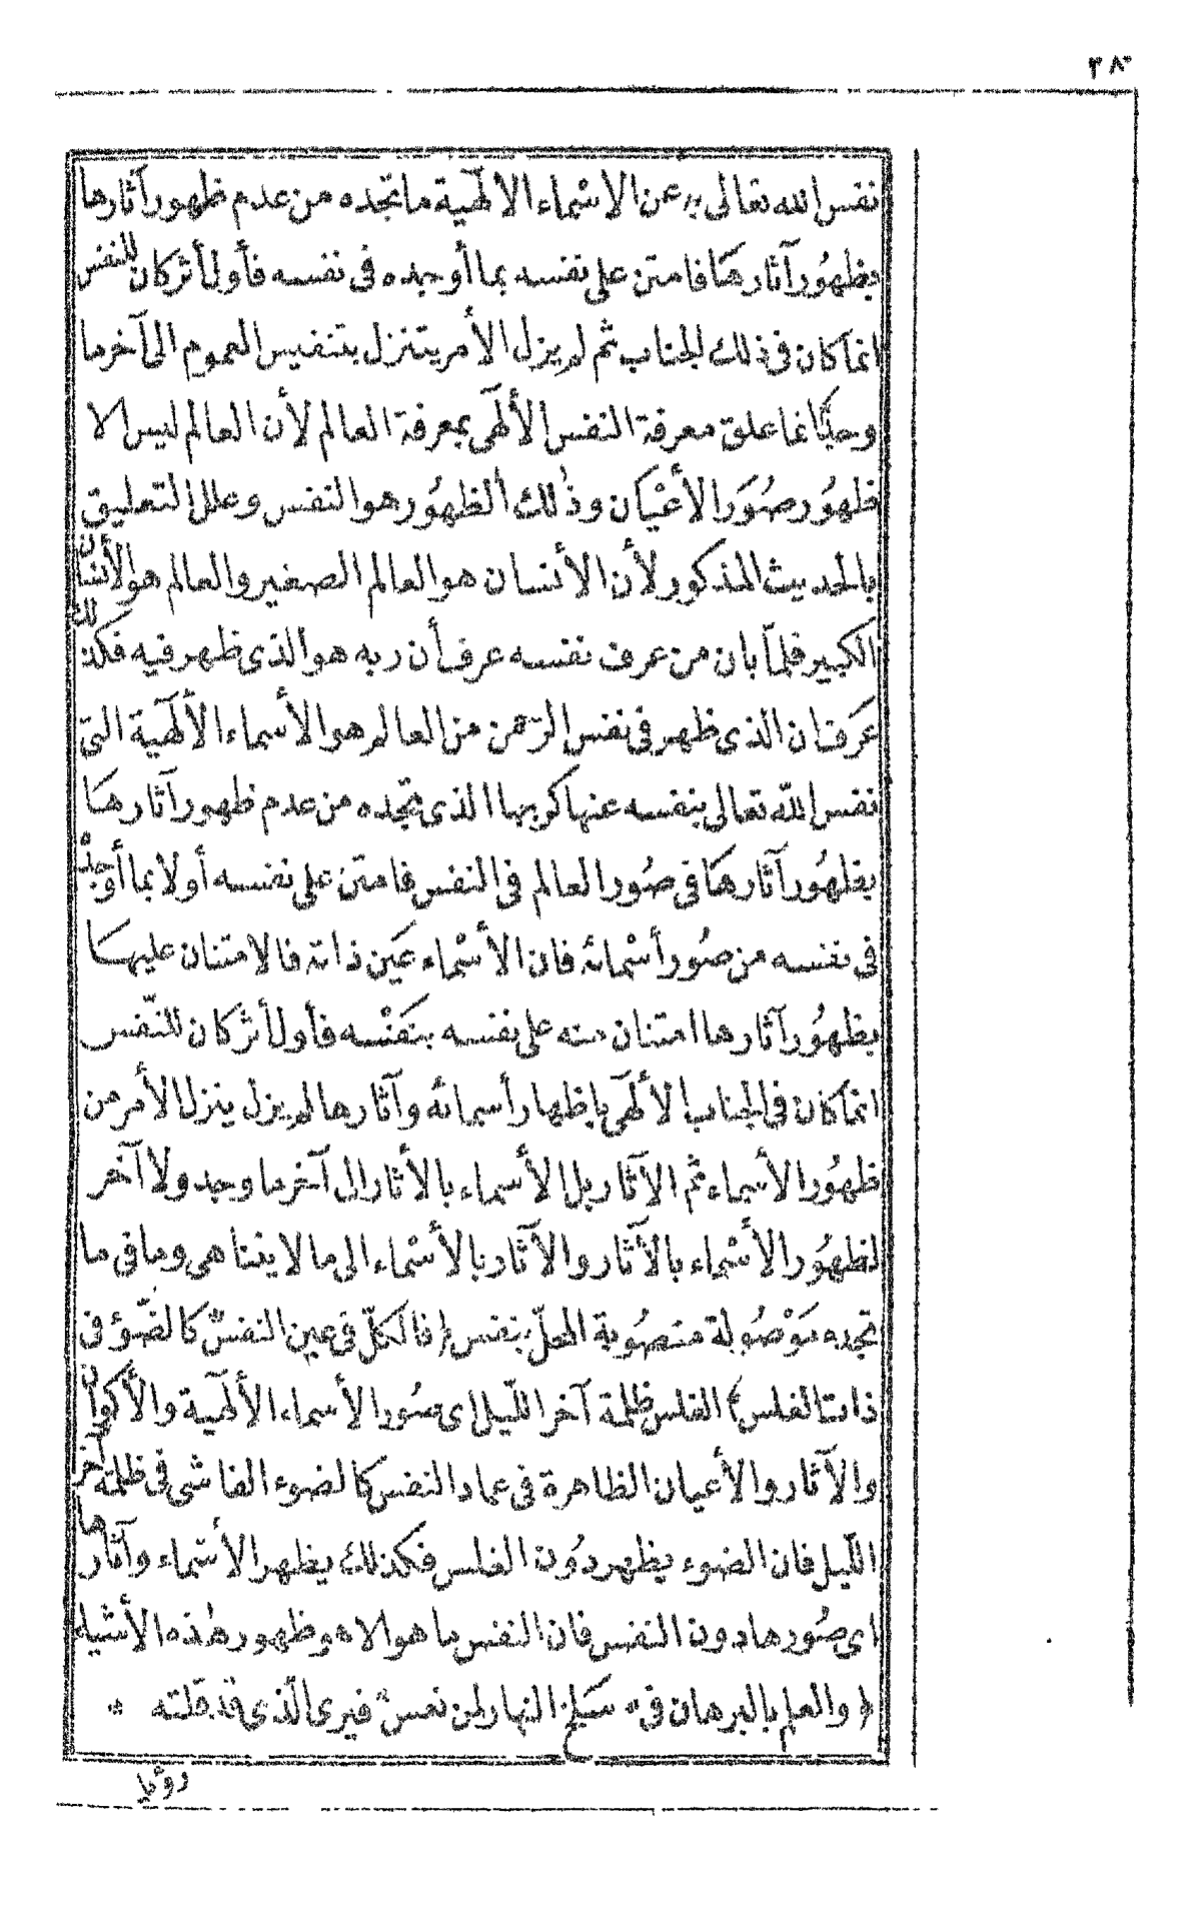 ٣٨٠
نفس الله تعالى به عن الاسْماء الالٓهية ما تجده من عدم ظهور آثارها
بظهُور آثارها فامتن على نفسه بما أوجده فى نفسه فأول أثر كان للنفس
انما كان فى ذلك الجناب ثم لم يزل الأمر يتنزل بتنفيس العموم الى آخر ما
وجد وانما علق معرفة النفس الألٓهى بمعرفة العالم لأن العالم ليس الا
ظهُور صُوَر الأعْيان وذٰلك الظهُور هو النفس وعلل التعليق
بالحديث المذكور لأن الأنسان هو العالم الصغير والعالم هو الأنسان
الكبير فلمّا بان من عرف نفسه عرف أن ربه هو الذى ظهر فيه فكذلك
عَرف ان الذى ظهر فى نفس الرّحمن من العالم هو الأسماء الألٓهية التى
نفس اللّه تعالى بنفسه عنها كربها الذى تجده من عدم ظهور آثارها
بظهُور آثارها فى صُور العالم فى النفس فامتن على نفسه أولا بما أوجدْ
فى نفسه من صُور أسْمائه فان الأسْماء عَين ذاته فالامتنان عليها
بظهُور آثارها امتنان منه على نفسه بنَفْسه فأول أثر كان للنّفس
انما كان فى الجناب الألٓهى باظهار أسمائه وآثارها لم يزل ينزل الأمر من
ظهُور الأسماء ثم الآثار بل الأسماء بالأثار الى آخر ما وجد ولا آخر
لظهُور الأسْماء بالآثار والآثار بالأسْماء الى ما لا يتناهى وما فى ما
تجده مَوْصُولة منصُوبة المحلّ بنفس ﴿ فالكلّ فى عين النفسْ كالضّوْء فى
ذات الغلس ﴾ الغلس ظلمة آخر اللّيل اى صُور الأسماء الألٓهية والأكوان
والآثار والأعيان الظاهرة فى عماد النفس كالضوء الفاشى فى ظلمة آخر
اللّيل فان الضوء يظهر دُون الغلس فكذلك يظهر الأسْماء وآثارها
اى صُورها دون النفس فان النفس ما هو الا ه وظهور هٰذه الأشياء
﴿ والعلم بالبرهان فى * سَلخ النهار لمن نعسْ فيرى الّذى قد قلته *
رؤيا